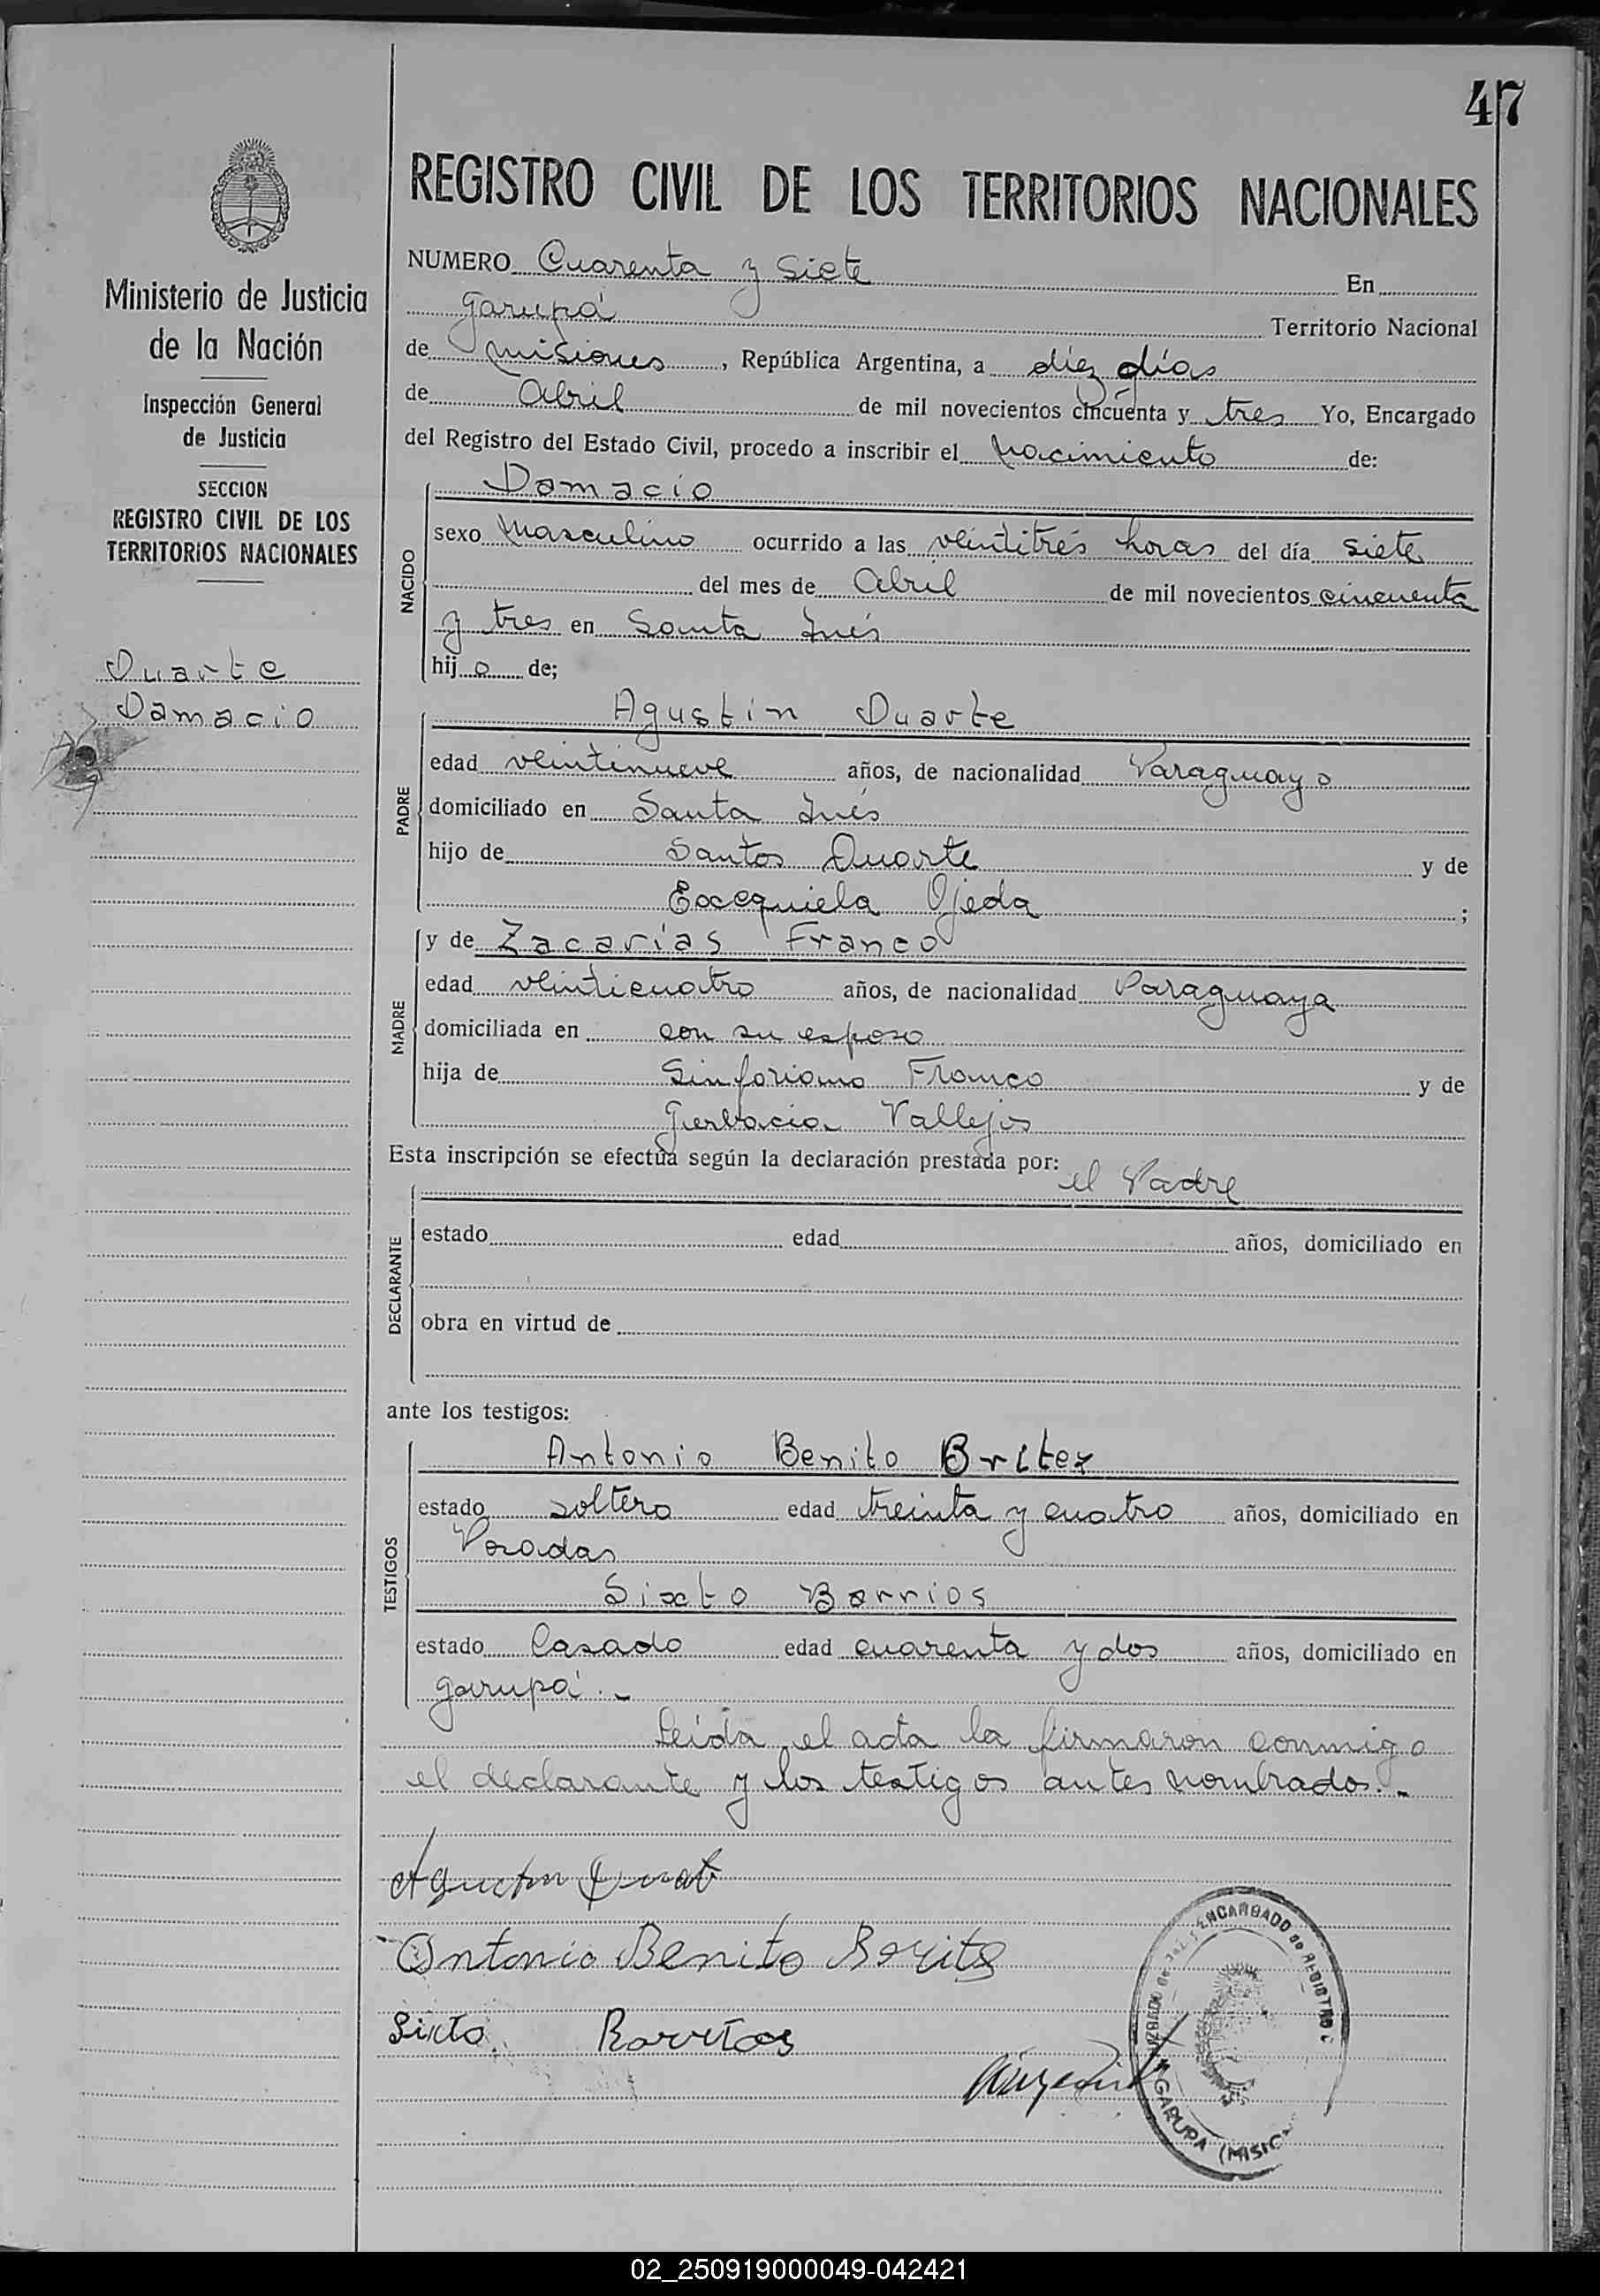 47
REGISTRO CIVIL DE LOS TERRITORIOS NACIONALES
Ministerio de Justicia
de la Nación
Inspección General
de Justicia
SECCION
REGISTRO CIVIL DE LOS
TERRITORIOS NACIONALES
Duarte
Damacio
NUMERO Cuarenta y Siete En
Garupá Territorio Nacional
de Misiones, República Argentina, a diez días
de Abril de mil novecientos cincuenta y tres Yo, Encargado
del Registro del Estado Civil, procedo a inscribir el Nacimiento de:
NACIDO
Damacio
sexo Masculino ocurrido a las veintitrés horas del día siete
del mes de Abril de mil novecientos cincuenta
y tres en Santa Inés
hijo de;
PADRE
Agustín Duarte
edad veintinueve años, de nacionalidad Paraguayo
domiciliado en Santa Inés
hijo de Santos Duarte y de
Exequiela Ojeda ;
MADRE
y de Zacarías Franco
edad veinticuatro años, de nacionalidad Paraguaya
domiciliada en con su esposo
hija de Sinforiano Franco y de
Gerbacia Vallejos
Esta inscripción se efectúa según la declaración prestada por: el Padre
DECLARANTE
estado edad años, domiciliado en
obra en virtud de
ante los testigos:
TESTIGOS
Antonio Benito Britez
estado soltero edad treinta y cuatro años, domiciliado en
Posadas
Sixto Barrios
estado Casado edad cuarenta y dos años, domiciliado en
Garupá.-
Leída el acta la firmaron conmigo
el declarante y los testigos antes nombrados.-
Antonio Benito
Sixto
ENCARGADO de REGISTRO
GARUPA (MISIC
02_250919000049-042421